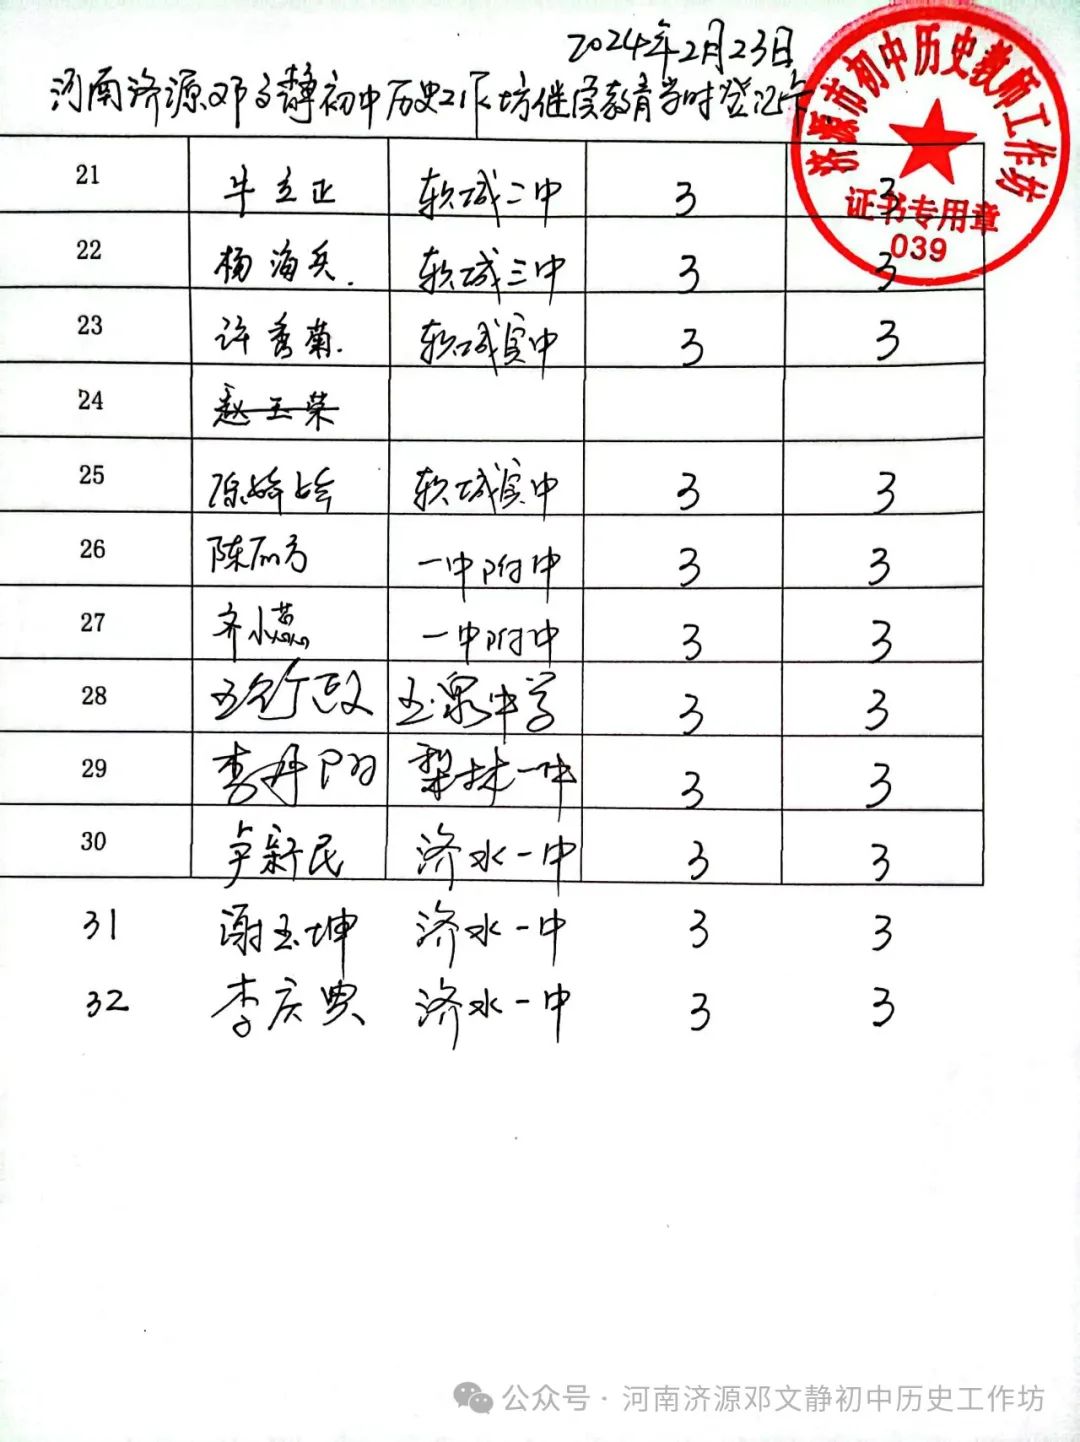 2024年2月23日
河南济源邓文静初中历史工作坊继续教育学时登记卡
济源市初中历史教师工作坊
证书专用章
039
21 牛立正 轵城二中 3 3
22 杨海兵. 轵城三中 3 3
23 许秀菊. 轵城实中 3 3
24 赵玉荣
25 轵城实中 3 3
26 陈丽方 一中附中 3 3
27 齐小蕊 一中附中 3 3
28 玉泉中学 3 3
29 李丹阳 梨林一中 3 3
30 卢新民 济水一中 3 3
31 谢玉坤 济水一中 3 3
32 李庆典 济水一中 3 3
公众号·河南济源邓文静初中历史工作坊